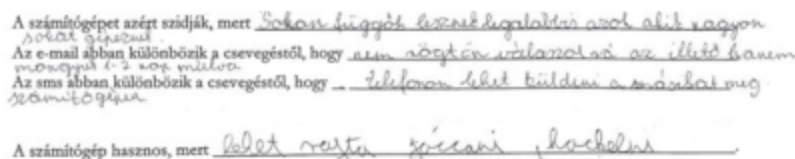 A számítógépet azért szidják, mert Sokan függők lesznek legalábbis azok akik nagyon
sokat gépeznek
Az e-mail abban különbözik a csevegéstől, hogy nem rögtön válaszol rá az illető hanem
mongyuk 1-2 nap múlva
Az sms abban különbözik a csevegéstől, hogy telefonon lehet küldeni a másikat meg
számítógépen
A számítógép hasznos, mert lehet rajta